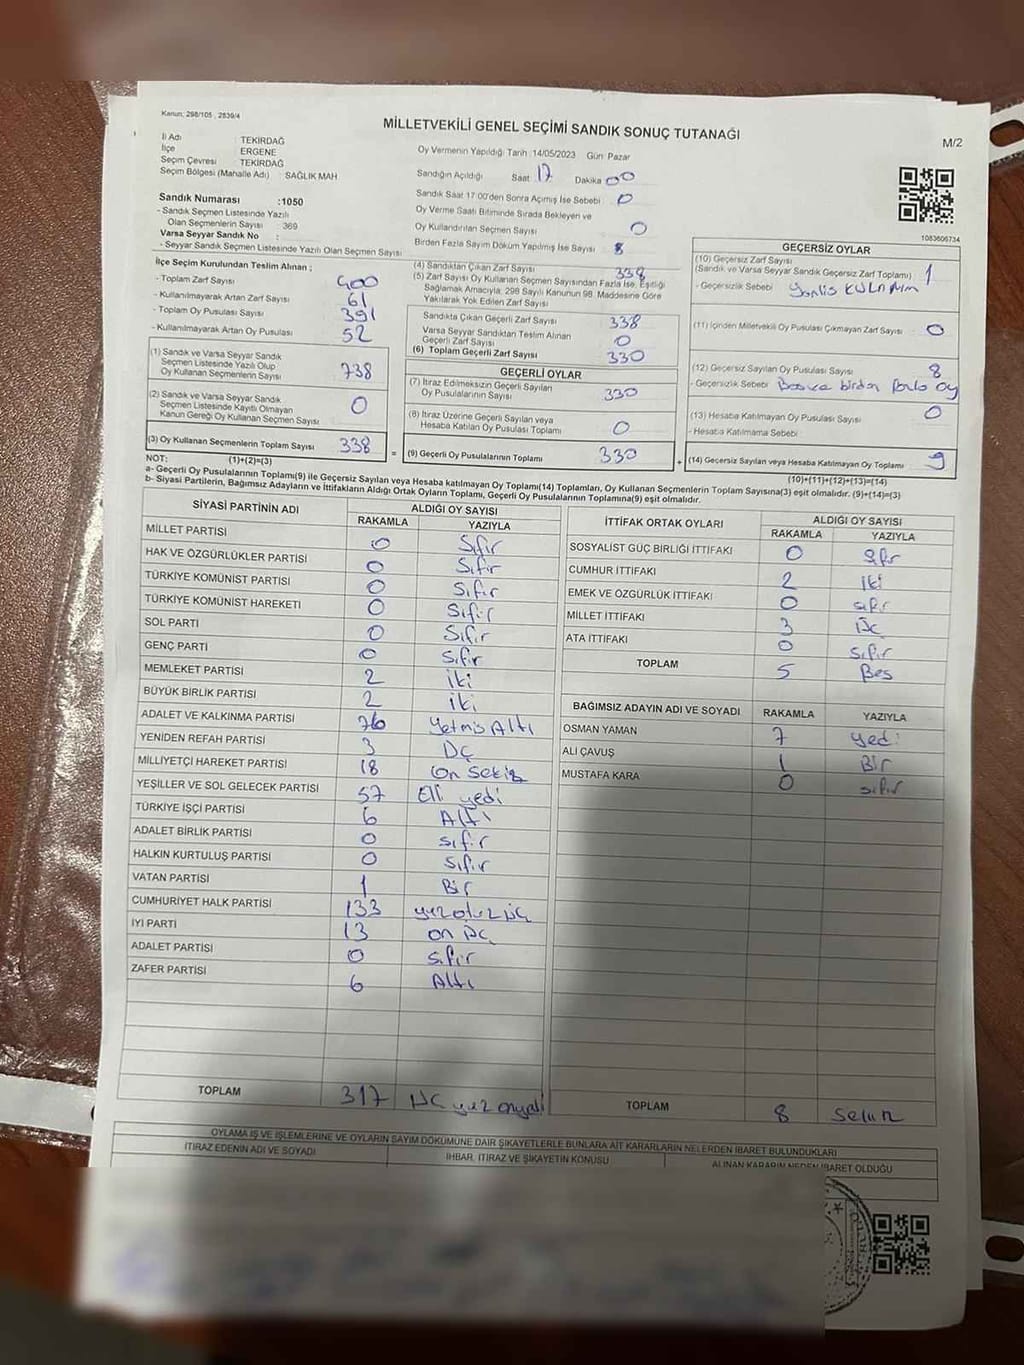 Kanun; 298/105 , 2839/4
MİLLETVEKİLİ GENEL SEÇİMİ SANDIK SONUÇ TUTANAĞI
M/2
İl Adı TEKİRDAĞ
İlçe ERGENE
Seçim Çevresi TEKİRDAĞ
Seçim Bölgesi (Mahalle Adı) SAĞLIK MAH
Sandık Numarası :1050
- Sandık Seçmen Listesinde Yazılı
Olan Seçmenlerin Sayısı 369
Varsa Seyyar Sandık No :
- Seyyar Sandık Seçmen Listesinde Yazılı Olan Seçmen Sayısı
Oy Vermenin Yapıldığı Tarih :14/05/2023 Gün: Pazar
Sandığın Açıldığı Saat 17 Dakika 00
Sandık Saat 17:00'den Sonra Açımış İse Sebebi 0
Oy Verme Saati Bitiminde Sırada Bekleyen ve
Oy Kullandırılan Seçmen Sayısı 0
Birden Fazla Sayım Döküm Yapılmış İse Sayısı 8
1083606734
İlçe Seçim Kurulundan Teslim Alınan ;
- Toplam Zarf Sayısı 400
- Kullanılmayarak Artan Zarf Sayısı 61
- Toplam Oy Pusulası Sayısı 391
- Kullanılmayarak Artan Oy Pusulası 52
(1) Sandık ve Varsa Seyyar Sandık
Seçmen Listesinde Yazılı Olup
Oy Kullanan Seçmenlerin Sayısı 738
(2) Sandık ve Varsa Seyyar Sandık
Seçmen Listesinde Kayıtlı Olmayan
Kanun Gereği Oy Kullanan Seçmen Sayısı 0
(3) Oy Kullanan Seçmenlerin Toplam Sayısı 338 =
(4) Sandıktan Çıkan Zarf Sayısı 338
(5) Zarf Sayısı Oy Kullanan Seçmen Sayısından Fazla İse, Eşitliği
Sağlamak Amacıyla; 298 Sayılı Kanunun 98. Maddesine Göre
Yakılarak Yok Edilen Zarf Sayısı
Sandıkta Çıkan Geçerli Zarf Sayısı 338
Varsa Seyyar Sandıktan Teslim Alınan
Geçerli Zarf Sayısı 0
(6) Toplam Geçerli Zarf Sayısı 330
GEÇERLİ OYLAR
(7) İtiraz Edilmeksizin Geçerli Sayılan
Oy Pusulalarının Sayısı 330
(8) İtiraz Üzerine Geçerli Sayılan veya
Hesaba Katılan Oy Pusulası Toplamı 0
(9) Geçerli Oy Pusulalarının Toplamı 330 +
GEÇERSİZ OYLAR
(10) Geçersiz Zarf Sayısı
(Sandık ve Varsa Seyyar Sandık Geçersiz Zarf Toplamı) 1
- Geçersizlik Sebebi
(11) İçinden Milletvekili Oy Pusulası Çıkmayan Zarf Sayısı 0
(12) Geçersiz Sayılan Oy Pusulası Sayısı 8
- Geçersizlik Sebebi birden fazla oy
(13) Hesaba Katılmayan Oy Pusulası Sayısı 0
- Hesaba Katılmama Sebebi
(14) Geçersiz Sayılan veya Hesaba Katılmayan Oy Toplamı 9
NOT: (1)+(2)=(3)
(10)+(11)+(12)+(13)=(14)
a- Geçerli Oy Pusulalarının Toplamı(9) ile Geçersiz Sayılan veya Hesaba katılmayan Oy Toplamı(14) Toplamları, Oy Kullanan Seçmenlerin Toplam Sayısına(3) eşit olmalıdır. (9)+(14)=(3)
b- Siyasi Partilerin, Bağımsız Adayların ve İttifakların Aldığı Ortak Oyların Toplamı, Geçerli Oy Pusulalarının Toplamına(9) eşit olmalıdır.
SİYASİ PARTİNİN ADI ALDIĞI OY SAYISI
RAKAMLA YAZIYLA
MİLLET PARTİSİ 0 Sıfır
HAK VE ÖZGÜRLÜKLER PARTİSİ 0 Sıfır
TÜRKİYE KOMÜNİST PARTİSİ 0 Sıfır
TÜRKİYE KOMÜNİST HAREKETİ 0 Sıfır
SOL PARTİ 0 Sıfır
GENÇ PARTİ 0 Sıfır
MEMLEKET PARTİSİ 2 İki
BÜYÜK BİRLİK PARTİSİ 2 İki
ADALET VE KALKINMA PARTİSİ 76 Yetmis Altı
YENİDEN REFAH PARTİSİ 3 Üç
MİLLİYETÇİ HAREKET PARTİSİ 18 On Sekiz
YEŞİLLER VE SOL GELECEK PARTİSİ 57 Elli yedi
TÜRKİYE İŞÇİ PARTİSİ 6 Altı
ADALET BİRLİK PARTİSİ 0 sıfır
HALKIN KURTULUŞ PARTİSİ 0 Sıfır
VATAN PARTİSİ 1 Bir
CUMHURİYET HALK PARTİSİ 133 yüz otuz üç
İYİ PARTİ 13 on üç
ADALET PARTİSİ 0 sıfır
ZAFER PARTİSİ 6 Altı
TOPLAM 317 Üç yüz onyedi
İTTİFAK ORTAK OYLARI ALDIĞI OY SAYISI
RAKAMLA YAZIYLA
SOSYALİST GÜÇ BİRLİĞİ İTTİFAKI 0 Sıfır
CUMHUR İTTİFAKI 2 İki
EMEK VE ÖZGÜRLÜK İTTİFAKI 0 sıfır
MİLLET İTTİFAKI 3 Üç
ATA İTTİFAKI 0 sıfır
TOPLAM 5 Bes
BAĞIMSIZ ADAYIN ADI VE SOYADI RAKAMLA YAZIYLA
OSMAN YAMAN 7 yedi
ALİ ÇAVUŞ 1 Bir
MUSTAFA KARA 0 sıfır
TOPLAM 8 Sekiz
OYLAMA İŞ VE İŞLEMLERİNE VE OYLARIN SAYIM DÖKÜMÜNE DAİR ŞİKAYETLERLE BUNLARA AİT KARARLARIN NELERDEN İBARET BULUNDUKLARI
İTİRAZ EDENİN ADI VE SOYADI İHBAR, İTİRAZ VE ŞİKAYETİN KONUSU ALINAN KARARIN NEDEN İBARET OLDUĞU